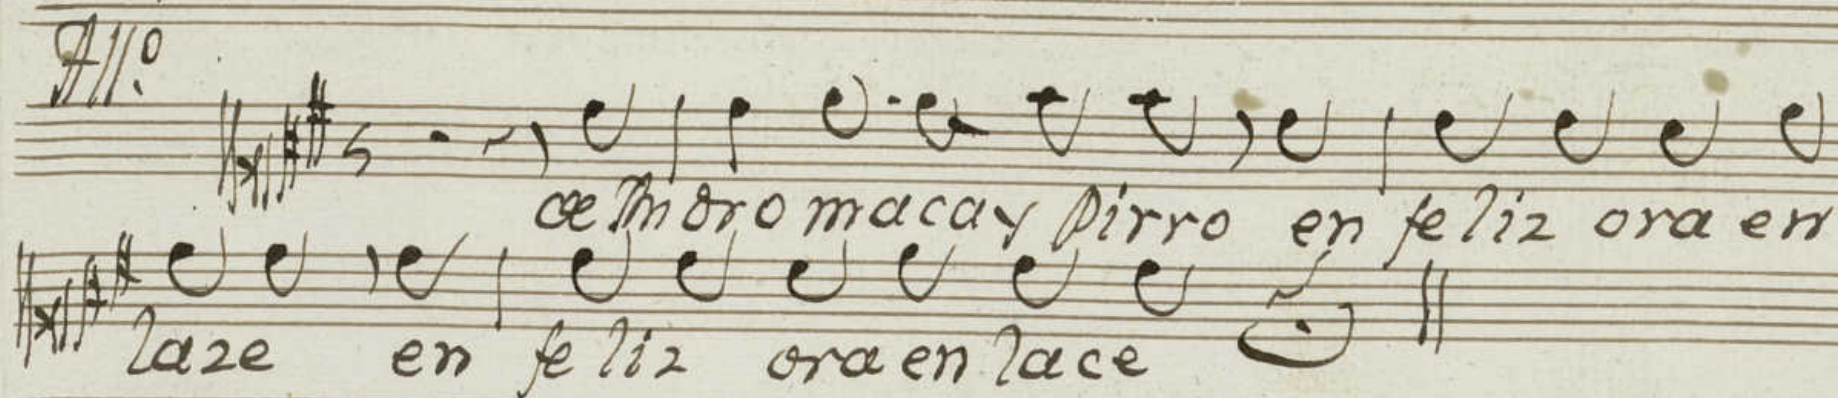 All.º
a Andromaca y Pirro en feliz ora en
laze en feliz ora en lace